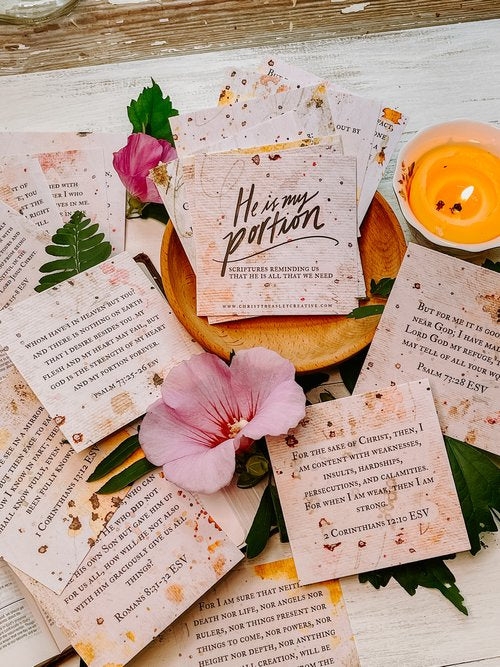 He is my
portion
SCRIPTURES REMINDING US
THAT HE IS ALL THAT WE NEED
WWW.CHRISTYBEASLEYCREATIVE.COM
WHOM HAVE I IN HEAVEN BUT YOU?
AND THERE IS NOTHING ON EARTH
THAT I DESIRE BESIDES YOU. MY
FLESH AND MY HEART MAY FAIL, BUT
GOD IS THE STRENGTH OF MY HEART
AND MY PORTION FOREVER.
PSALM 73:25-26
BUT FOR ME IT IS GOOD
NEAR GOD; I HAVE MA
LORD GOD MY REFUGE,
MAY TELL OF ALL YOUR WO
PSALM 73:28 ESV
FOR THE SAKE OF CHRIST, THEN, I
AM CONTENT WITH WEAKNESSES,
INSULTS, HARDSHIPS,
PERSECUTIONS, AND CALAMITIES.
FOR WHEN I AM WEAK, THEN I AM
STRONG.
2 CORINTHIANS 12:10 ESV
SEE IN A MIRROR
BUT THEN FACE TO FA
NOW I KNOW IN PART; THEN
SHALL KNOW FULLY, EVEN
BEEN FULLY KNOWN
1 CORINTHIANS
HE WHO DID NOT
HIS OWN SON BUT GAVE HIM UP
FOR US ALL, HOW WILL HE NOT ALSO
WITH HIM GRACIOUSLY GIVE US ALL
THINGS?
ROMANS 8:31-32 ESV
FOR I AM SURE THAT NEITH
DEATH NOR LIFE, NOR ANGELS NOR
RULERS, NOR THINGS PRESENT NOR
THINGS TO COME, NOR POWERS, NOR
HEIGHT NOR DEPTH, NOR ANYTHING
ALL CREATION, WILL BE